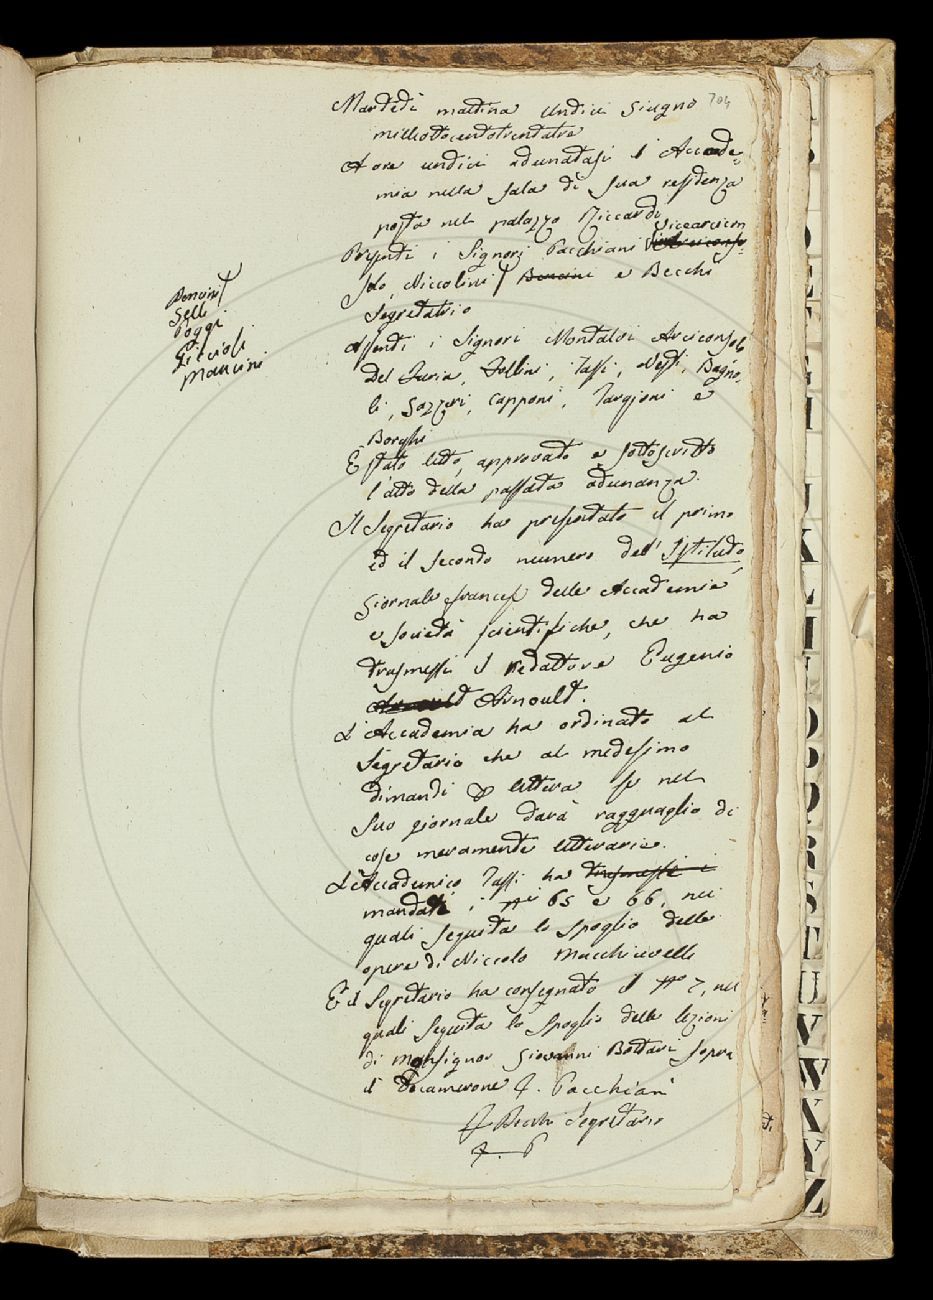 704
Martedì mattina undici Giugno
milleottocentotrentatre
A ore undici adunatasi l'Accade-
mia nella sala di sua residenza
posta nel palazzo Riccardi
Presenti i Signori Pacchiani Vicearcicon
solo, Niccolini Bencini e Becchi
Segretario
Bencini
Gelli
Poggi
Piccioli
Mancini
Assenti i Signori Montalvi Arciconsolo
Del Furia, Follini, Tassi, Nesti, Bagno-
li, Gazzeri, Capponi, Targioni e
Borghi
È stato letto, approvato e sottoscritto
l'atto della passata adunanza.
Il Segretario ha presentato il primo
ed il secondo numero dell'Istituto,
giornale francese delle Accademie
e società scientifiche, che ha
trasmessi il redattore Eugenio
Arnoult Arnoult.
L'Accademia ha ordinato al
Segretario che al medesimo
dimandi per lettera se nel
suo giornale darà ragguaglio di
cose meramente letterarie.
L'Accademico Tassi ha trasmessi i
mandati i nⁱ 65 e 66, nei
quali seguita lo spoglio delle
opere di Niccolo Macchiavelli
E il Segretario ha consegnato il nº 7, nel
quale seguita lo spoglio delle lezioni
di Monsignor Giovanni Bottari sopra
il Decamerone F. Pacchiani
F. Becchi Segretario